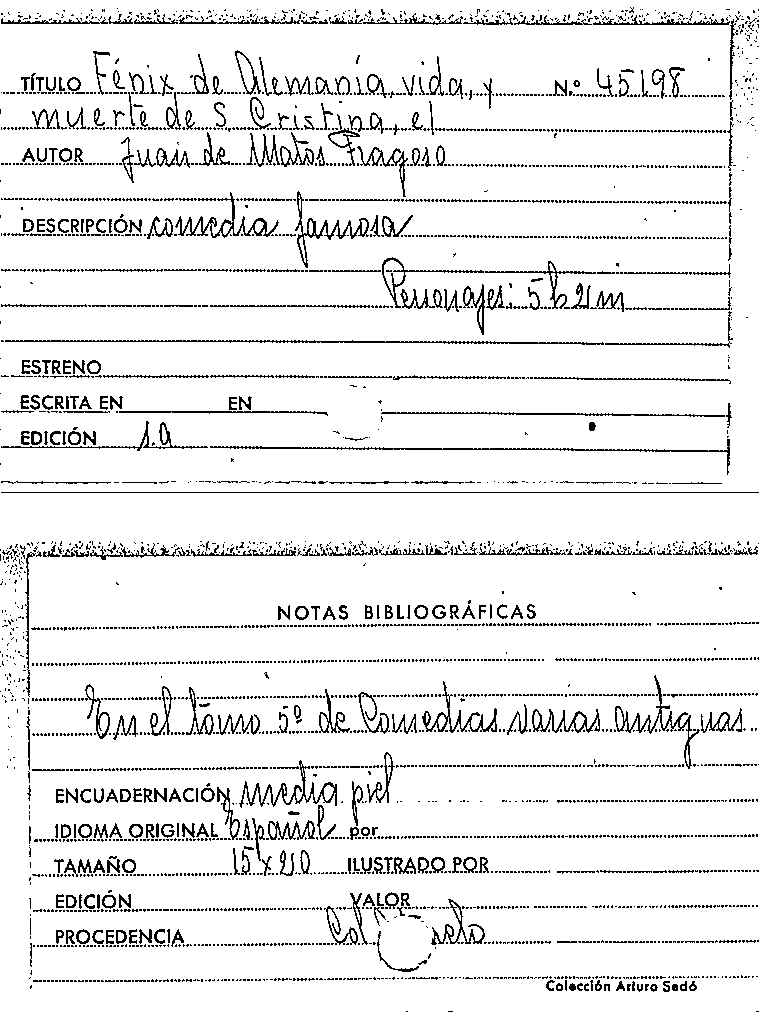 TÍTULO Fénix de Alemania, vida, y Nº 45198
muerte de S. Cristina, el
AUTOR Juan de Matos Fragoso
DESCRIPCIÓN comedia famosa
Personajes: 5 h 2 m
ESTRENO
ESCRITA EN EN
EDICIÓN s.a
NOTAS BIBLIOGRÁFICAS
En el tomo 5º de Comedias varias antiguas
ENCUADERNACIÓN media piel
IDIOMA ORIGINAL Español por
TAMAÑO 15 x 210 ILUSTRADO POR
EDICIÓN VALOR
PROCEDENCIA Col
Colección Arturo Sedó